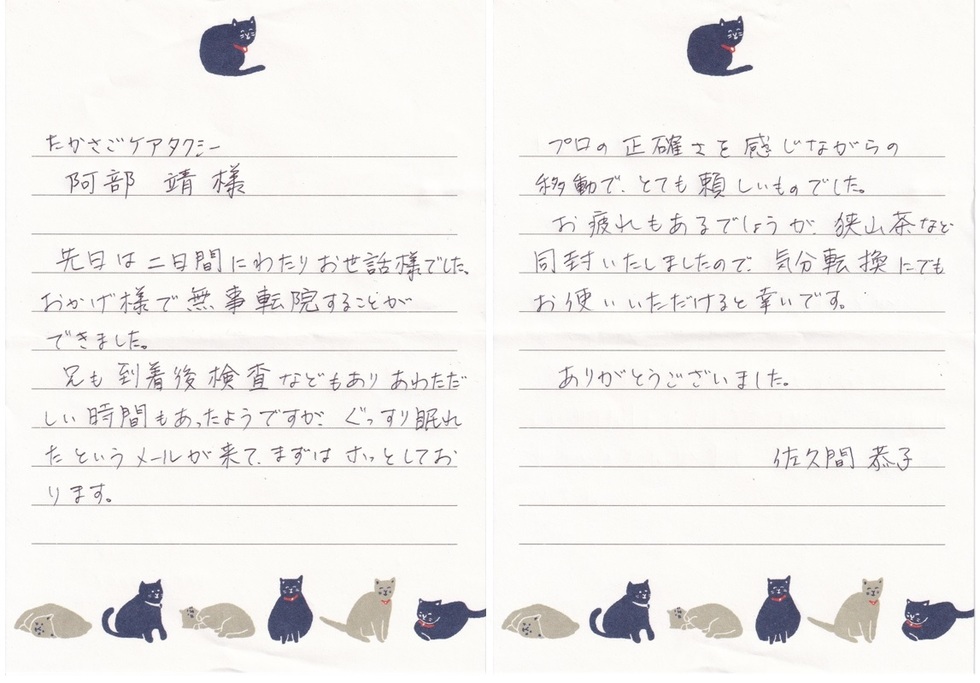 たかさごケアタクシー
阿部 靖 様
先日は二日間にわたりお世話様でした。
おかげ様で無事転院することが
できました。
兄も到着後検査などもありあわただ
しい時間もあったようですが、ぐっすり眠れ
たというメールが来て、まずはホッとしてお
ります。
プロの正確さを感じながらの
移動で、とても頼しいものでした。
お疲れもあるでしょうが、狭山茶など
同封いたしましたので、気分転換にでも
お使いいただけると幸いです。
ありがとうございました。
佐久間 恭子